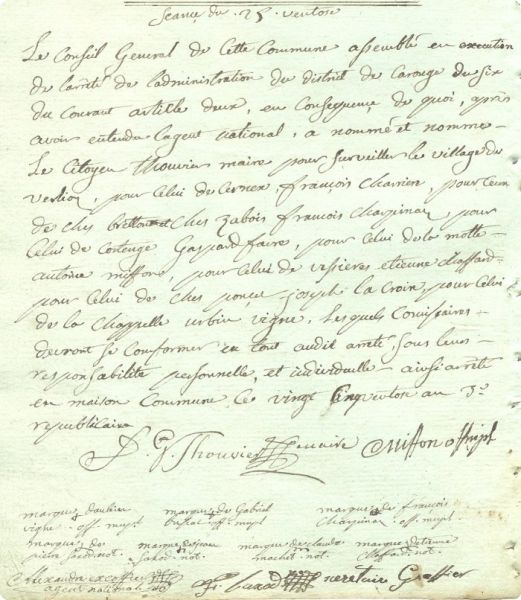 Seance du 25 ventose
Le Conseil General de Cette Commune assemblé en execution
de larrêté de ladministration du district de Carouge du six
du Courant article deux, en Consequence de quoi, après
avoir entendu lagent national, a nommé et nomme
Le Citoyen Thouvier maire pour surveiller le village du
verlioz, pour Celui de Cernex françois Charriere, pour Ceux
de Chez Chez Zabois françois Chappinaz, pour
Celui de Cortenge Gaspard favre, pour Celui de la motte
antoine miffon, pour Celui de visieres etienne Chaffard
pour Celui de Chez poncet joseph la Croix, pour Celui
de la Chappelle urbin vigne, Lesquels Comissaires
devront se Conformer en tout audit arrêté sous leurs
responsabilité personnelle, et individuelle ainsi arrêté
en maison Commune le vingt Cinq ventose an 3e
republicaine
Thouvier maire Miffon off mpl
marque daubin marque de Gabriel marque de françois
vigne off. mupl off. mupl Chappinaz off. mupl
marque de marque de marque de claude marque detienne
pierre not. not. machet not. Chaffard not.
Alexandre excoffier
agent national secretaire Greffier